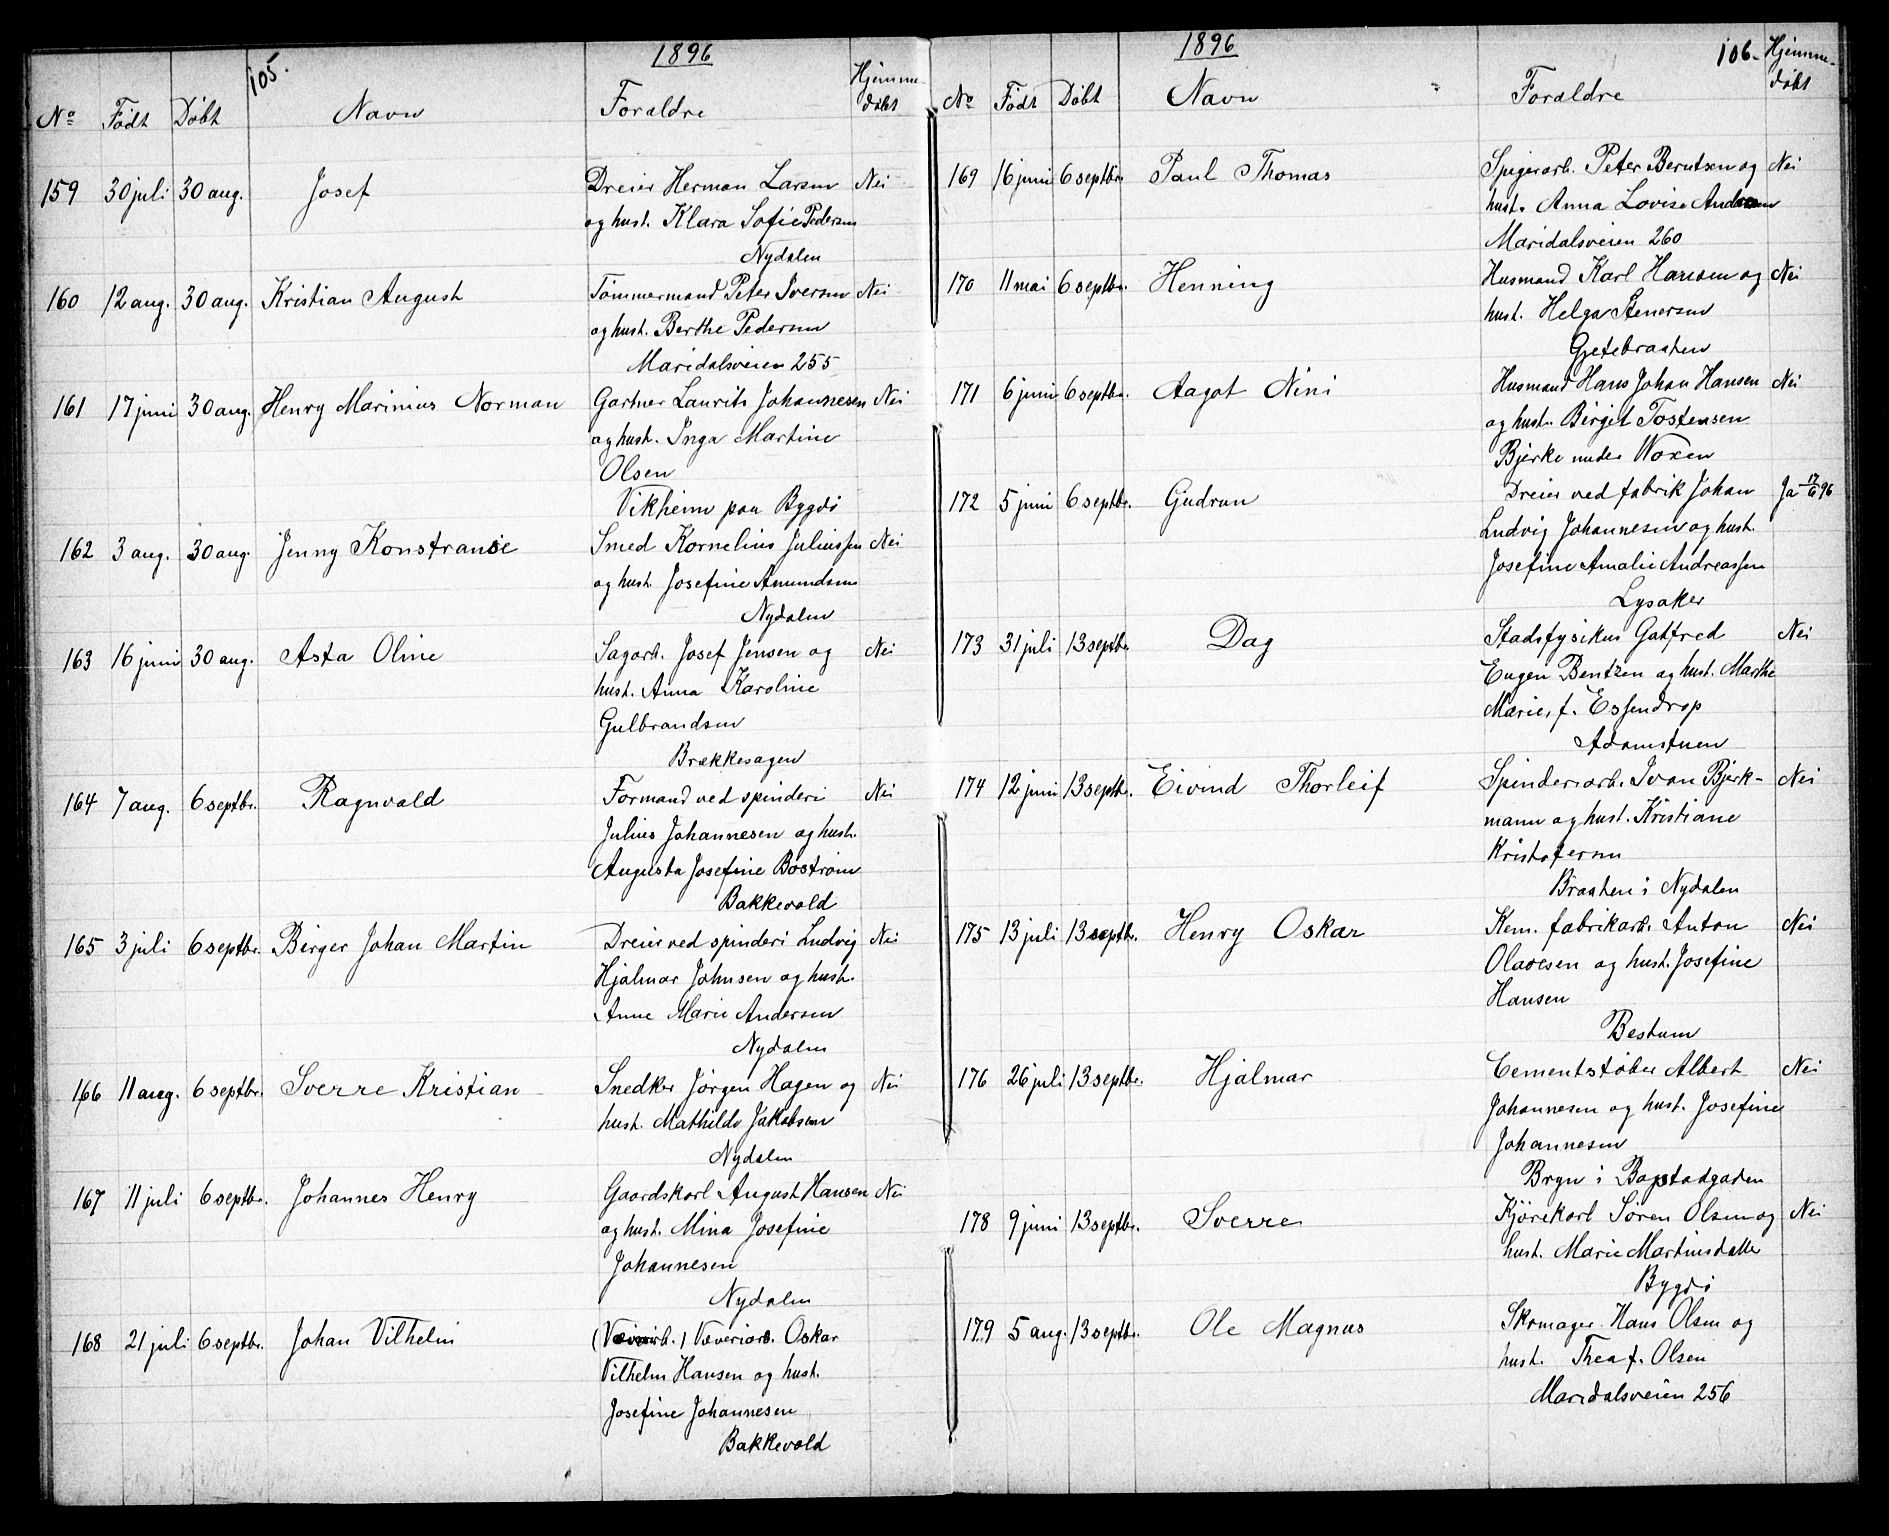 105.
1896
No Født Døbt Navn Foraldre Hjemme-
døbt
159 30 juli 30 aug. Josef Dreier Herman Larsen Nei
og hust. Klara Sofie Pedersen
Nydalen
160 12 aug. 30 aug. Kristian August Tømmermand Peter Iversen Nei
og hust. Berthe Pedersen
Maridalsveien 255
161 17 juni 30 aug. Henry Marinius Norman Gartner Laurits Johannesen Nei
og hust. Inga Martine
Olsen
Vikheim paa Bygdø
162 3 aug. 30 aug. Jenny Konstranse Smed Kornelius Juliussen Nei
og hust. Josefine Amundsen
Nydalen
163 16 juni 30 aug. Asta Oline Sagarb. Josef Jensen og Nei
hust. Anna Karoline
Gulbrandsen
Brækkesagen
164 7 aug. 6 septbr. Ragnvald Formand ved spinderi Nei
Julius Johannesen og hust.
Augusta Josefine Bostrøm
Bakkevold
165 3 juli 6 septbr. Birger Johan Martin Dreier ved spinderi Ludvig Nei
Hjalmar Johnsen og hust.
Anne Marie Andersen
Nydalen
166 11 aug. 6 septbr. Sverre Kristian Snedker Jørgen Hagen og Nei
hust. Mathilde Jakobsen
Nydalen
167 11 juli 6 septbr. Johannes Henry Gaardskarl August Hansen Nei
og hust. Mina Josefine
Johannesen
Nydalen
168 21 juli 6 septbr. Johan Vilhelm Væveriarb. Oskar
Vilhelm Hansen og hust.
Josefine Johannesen
Bakkevold
1896
106. Hjemme-
døbt
No Født Døbt Navn Foraldre
169 16 juni 6 septbr. Paul Thomas Spigerarb. Peter Berntsen og Nei
hust. Anna Lovise Andersen
Maridalsveien 260
170 11 mai 6 septbr. Henning Husmand Karl Hansen og Nei
hust. Helga Stenersen
Gjetebraaten
171 6 juni 6 septbr. Aagot Nini Husmand Hans Johan Hansen Nei
og hust. Birgit Tostensen
Bjerke under Voxen
172 5 juni 6 septbr. Gudrun Dreier ved fabrik Johan Ja 17/6 96
Ludvig Johannesen og hust.
Josefine Amalie Andreassen
Lysaker
173 31 juli 13 septbr. Dag Stadsfysikus Gotfred Nei
Eugen Bentzen og hust. Marthe
Marie, f. Essendrop
Adamstuen
174 12 juni 13 septbr. Eivind Thorleif Spinderiarb. Ivan Bjerk- Nei
mann og hust. Kristiane
Kristofersen
Braaten i Nydalen
175 13 juli 13 septbr. Henry Oskar Kem. fabrikarb. Anton Nei
Olavesen og hust. Josefine
Hansen
Bestum
176 26 juli 13 septbr. Hjalmar Cementstøber Albert Nei
Johannesen og hust. Josefine
Johannesen
Bryn i Bapstadgaden
178 9 juni 13 septbr. Sverre Kjørekarl Søren Olsen og Nei
hust. Marie Martinsdatter
Bygdø
179 5 aug. 13 septbr. Ole Magnus Skomager Hans Olsen og
hust. Thea f. Olsen
Maridalsveien 256